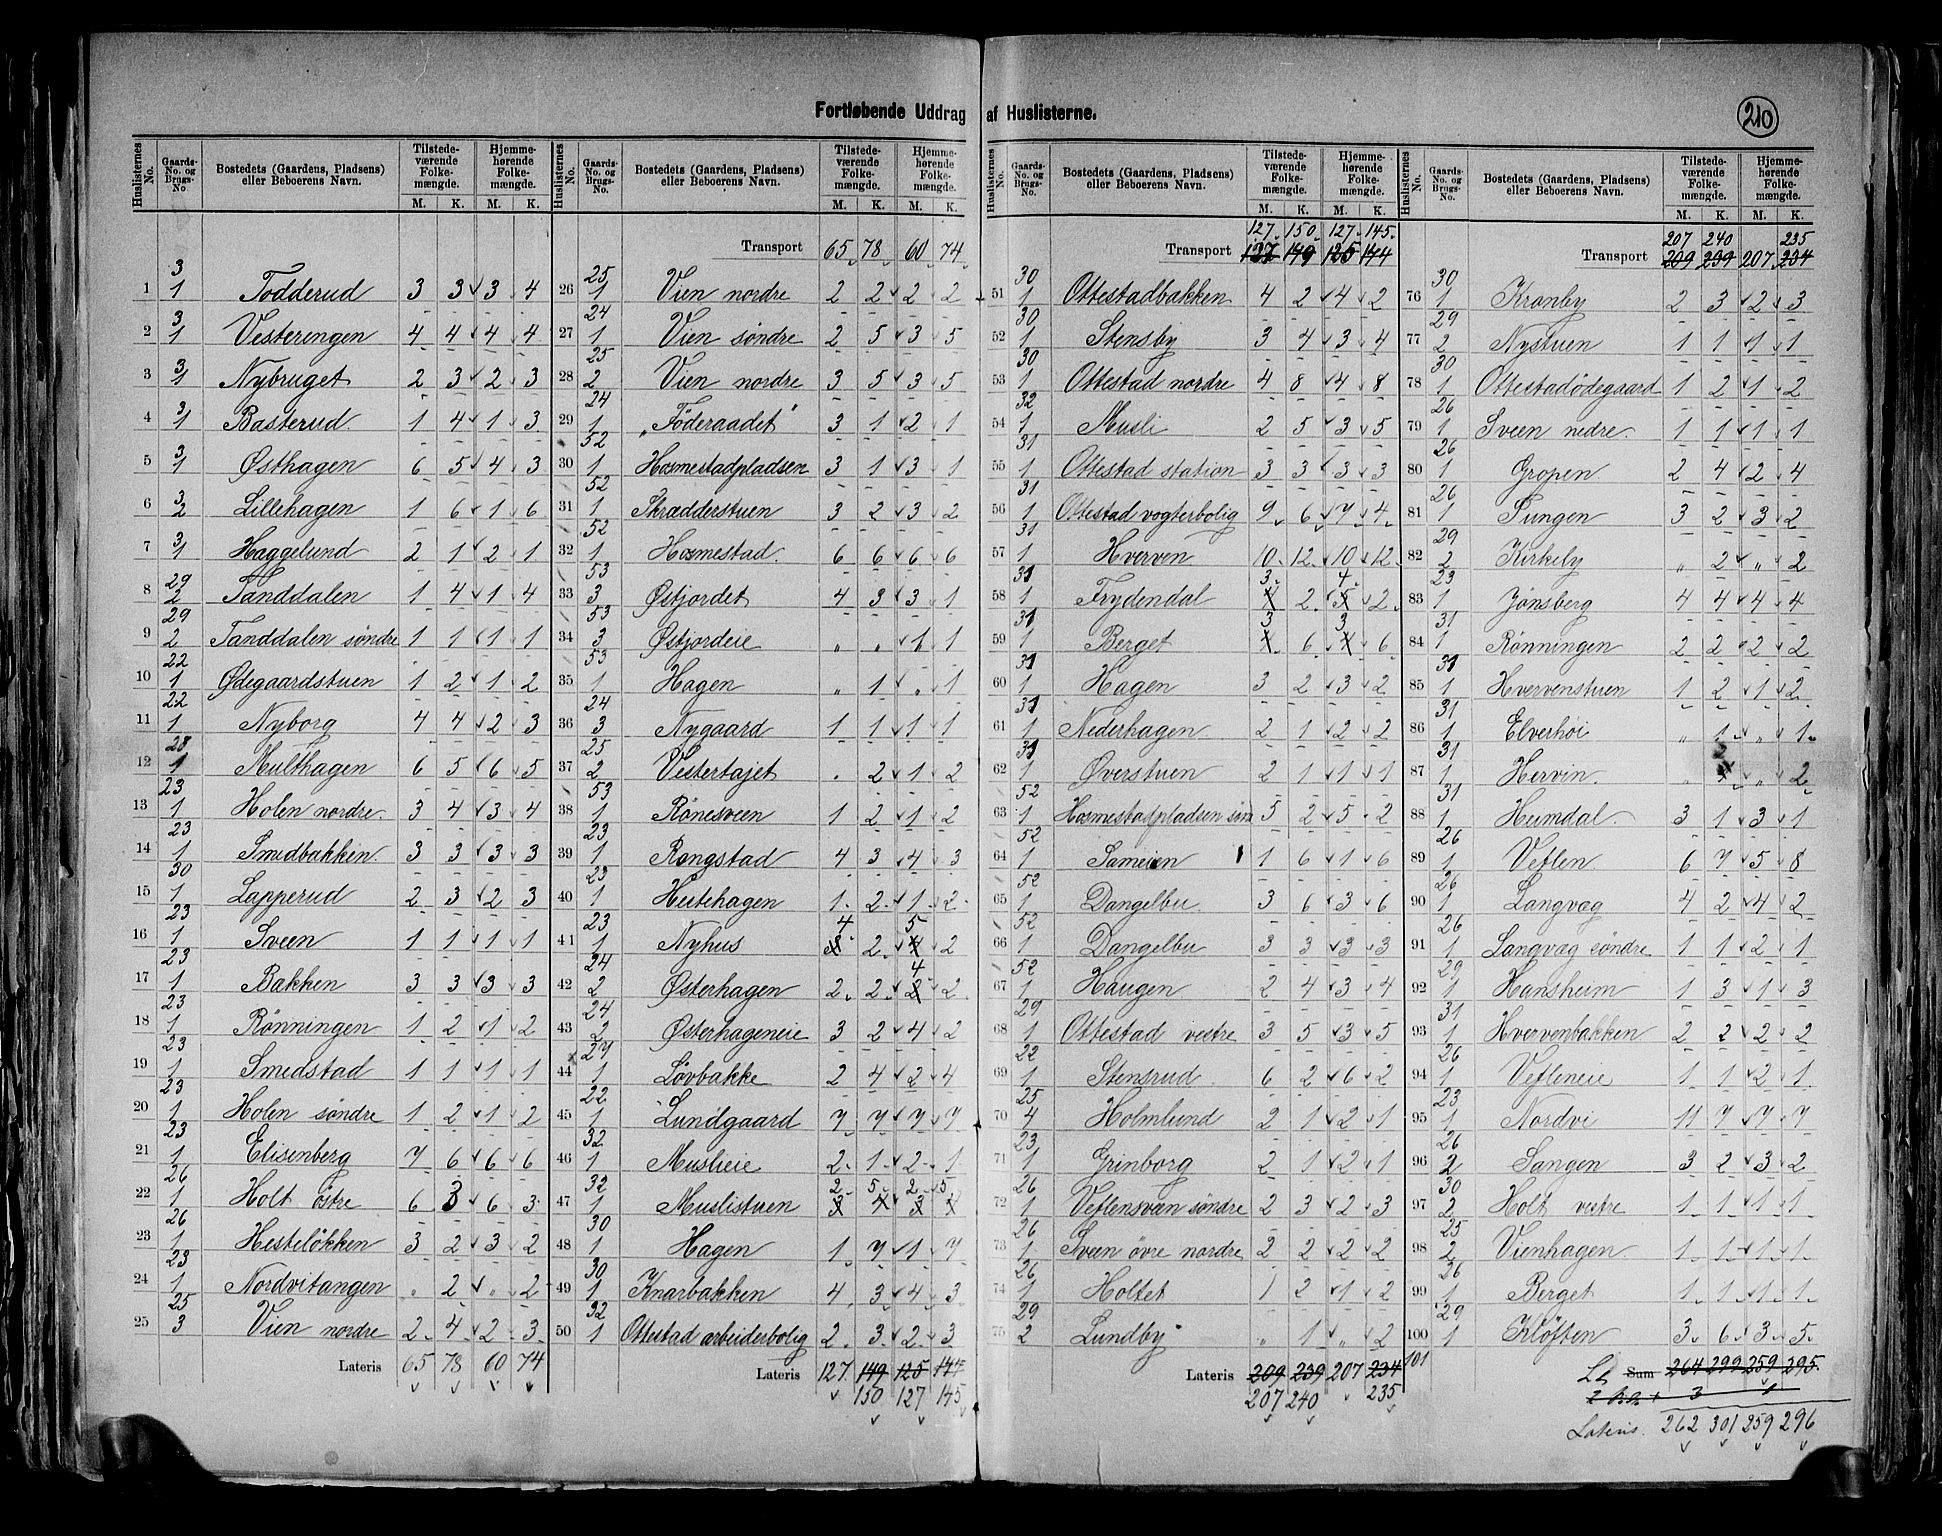 Fortløbende Uddrag af Huslisterne.
210
Huslisternes No. Gaards-No. og Brugs-No Bostedets (Gaardens, Pladsens) eller Beboerens Navn. Tilstedeværende Folkemængde. M. K. Hjemmehørende Folkemængde. M. K.
1 3/1 Todderud 3 3 3 4
2 3/1 Vesterengen 4 4 4 4
3 3/1 Nybruget 2 3 2 3
4 3/1 Basterud 1 4 1 3
5 3/1 Østhagen 6 5 4 3
6 3/2 Lillehagen 1 6 1 6
7 3/1 Haggelund 2 1 2 1
8 29/2 Tanddalen 1 4 1 4
9 29/2 Tanddalen søndre 1 1 1 1
10 22/1 Ødegaardstuen 1 2 1 2
11 22/1 Nyborg 4 4 2 3
12 28/1 Multhagen 6 5 6 5
13 23/1 Holen nordre. 3 4 3 4
14 23/1 Smedbakken. 3 3 3 3
15 30/1 Lapperud 2 3 2 3
16 23/1 Sveen 1 1 1 1
17 23/1 Bakken 3 3 3 3
18 23/1 Rønningen 1 2 1 2
19 23/1 Smedstad 1 1 1 1
20 23/1 Holen søndre 1 2 1 2
21 23/1 Elisenberg 7 6 6 6
22 26/1 Holt östre 6 3 6 3
23 26/1 Hestelökken 3 2 3 2
24 23/1 Nordvitangen " 2 " 2
25 25/3 Vien nordre 2 4 2 3
Lateris 65 78 60 74
Huslisternes No. Gaards-No. og Brugs-No. Bostedets (Gaardens, Pladsens) eller Beboerens Navn. Tilstedeværende Folkemængde. M. K. Hjemmehørende Folkemængde. M. K.
Transport 65 78 60 74
26 25/1 Vien nordre 2 2 2 2
27 24/1 Vien søndre 2 5 3 5
28 25/2 Vien nordre 3 5 3 5
29 24/1 "Föderaadet" 3 1 2 1
30 52/1 Hosmestadpladsen 3 1 3 1
31 52/1 Skrædderstuen 3 2 3 2
32 52/1 Hosmestad. 6 6 6 6
33 53/3 Østjordet 4 3 3 1
34 53/3 Østjordeie " " 1 1
35 53/1 Hagen " 1 " 1
36 24/3 Nygaard 1 1 1 1
37 25/2 Vestertajet . 2 1 2
38 53/1 Rönesveen 1 2 1 2
39 23/1 Rangstad 4 3 4 3
40 23/1 Hestehagen 1 2 1 2
41 23/1 Nyhus 4 2 5 2
42 24/2 Østerhagen 2 2 4 2
43 24/2 Østerhageneie 3 2 4 2
44 27/1 Lövbakke 2 4 2 4
45 22/1 Lundgaard 7 7 7 7
46 32/1 Muslieie 2 1 2 1
2 5 2 5
47 32/1 Muslistuen 3 4 3 4
48 30/1 Hagen 1 7 1 7
49 30/1 Knarbakken 4 3 4 3
50 32/1 Ottestad arbeiderbolig 2 3 2 3
Lateris 127 149 125 144
150 127 145
Huslisternes No. Gaards-No. og Brugs-No. Bostedets (Gaardens, Pladsens) eller Beboerens Navn. Tilstedeværende Folkemængde. M. K. Hjemmehørende Folkemængde. M. K.
127 150 127 145
Transport 127 149 125 144
51 30/1 Ottestadbakken 4 2 4 2
52 30/1 Stensby 3 4 3 4
53 30/1 Ottestad nordre 4 8 4 8
54 32/1 Musli 2 5 3 5
55 31/1 Ottestad station 3 3 3 3
56 31/1 Ottestad vogterbolig 9 6 7 4
57 31/1 Hverven 10 12 10 12
58 31/1 Frydendal 3 2 4 2
59 31/1 Berget 3 6 3 6
60 31/1 Hagen 3 2 3 2
61 31/1 Nederhagen 2 1 2 2
62 31/1 Øverstuen 2 1 1 1
63 52/1 Hosmestadpladsen sön 5 2 5 2
64 52/1 Sameien 1 6 1 6
65 52/1 Dangelbu 3 6 3 6
66 52/1 Dangelbu 3 3 3 3
67 52/1 Haugen 2 4 3 4
68 29/1 Ottestad vestre 3 5 3 5
69 22/1 Stensrud 6 2 6 2
70 25/4 Holmlund 2 1 2 1
71 23/1 Grinborg 2 1 2 1
72 26/1 Veflensvæn søndre 2 3 2 3
73 26/1 Sveen övre nordre 2 2 2 2
74 26/1 Holtet 1 2 1 2
75 29/2 Lundby " 1 " 2
Lateris 209 239 207 234
207 240 235
Huslisternes No. Gaards-No. og Brugs-No. Bostedets (Gaardens, Pladsens) eller Beboerens Navn. Tilstedeværende Folkemængde. M. K. Hjemmehørende Folkemængde. M. K.
207 240 235
Transport 209 239 207 234
76 30/1 Kronby 2 3 2 3
77 29/2 Nystuen 1 1 1 1
78 30/1 Ottestadødegaard 1 2 1 2
79 26/1 Sveen nedre. 1 1 1 1
80 26/1 Gropen. 2 4 2 4
81 26/1 Tungen 3 2 3 2
82 29/2 Kirkeby " 2 " 2
83 23/1 Jønsberg 4 4 4 4
84 31/1 Rønningen 2 2 2 2
85 31/1 Hvervenstuen 1 2 1 2
86 31/1 Elverhöi " 1 " 1
87 31/1 Hervin. " " 2
88 31/1 Humdal. 3 1 3 1
89 26/1 Veflen 6 7 5 8
90 26/1 Langvæg 4 2 4 2
91 26/1 Langvæg søndre 1 1 2 1
92 29/1 Hansheim 1 3 1 3
93 31/1 Hvervenbakken 2 2 2 2
94 26/1 Vefleneie 1 1 2 1
95 23/1 Nordvi 11 7 7 7
96 26/2 Sangen 3 2 3 2
97 30/2 Holt vestre 1 1 1 1
98 25/2 Vienhagen 1 1 1 1
99 26/1 Berget 1 1 1 1
100 29/1 Kløften 3 6 3 5
101 Sum 264 299 259 295
3 1
Lateris. 262 301 259 296